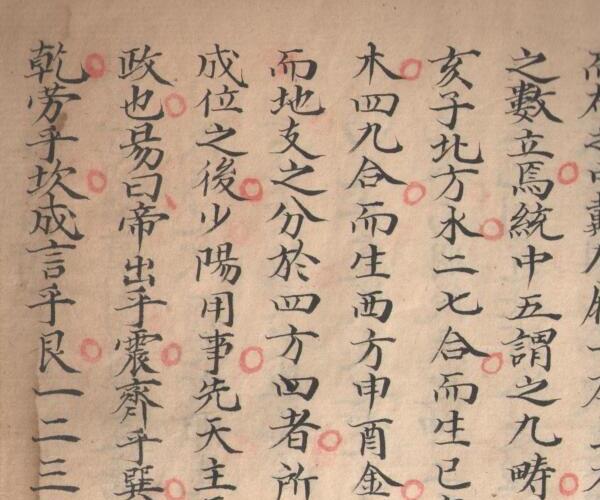 之數立焉統中五謂之九疇
亥子北方水二七合而生巳
木四九合而生西方申酉金
而地支之分於四方四者所
成位之後少陽用事先天主
政也易曰帝出乎震齊乎巽
乾勞乎坎成言乎艮一二三